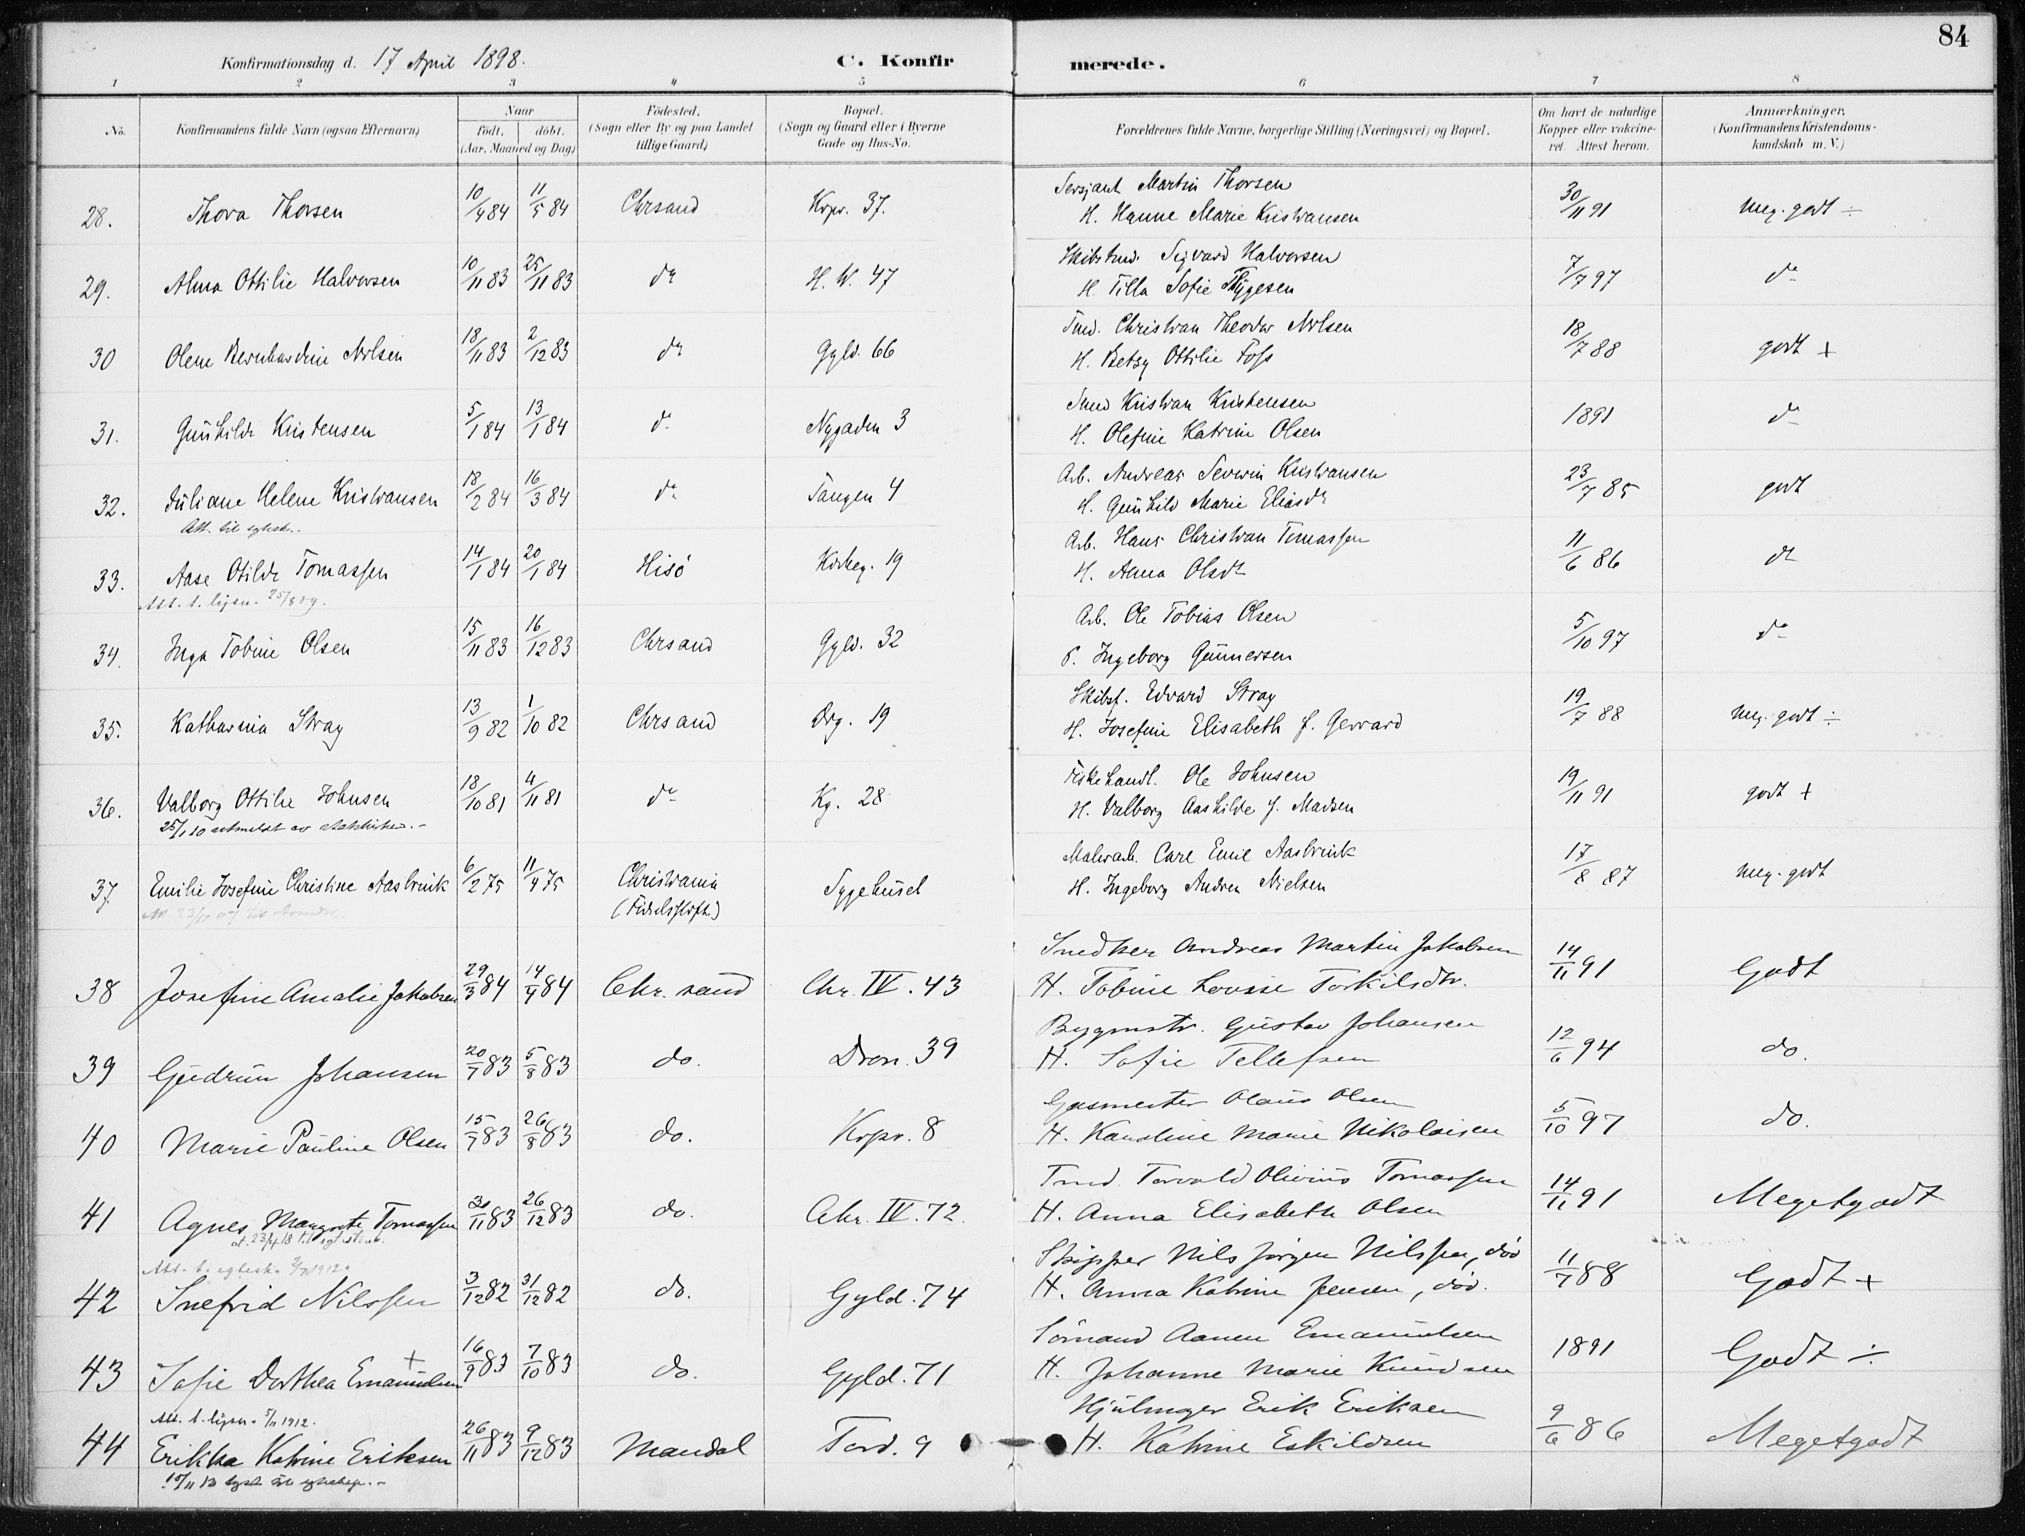 84
Konfirmationsdag d. 17 April 1898. C. Konfirmerede.
1 2 3 4 5 6 7 8
No. Konfirmandens fulde Navn (ogsaa Efternavn) Naar født, døbt. (Aar, Maaned og Dag) Fødested. (Sogn eller By og paa Landet tillige Gaard) Bopæl. (Sogn og Gaard eller i Byerne Gade og Hus-No. Forældrenes fulde Navne, borgerlige Stilling (Næringsvei) og Bopæl. Om havt de naturlige Kopper eller vakcineret. Attest herom. Anmærkninger. (Konfirmandens Kristendomskundskab m. V.)
28. Thora Thorsen 10/4 84 11/5 84 Chrsand Krpr. 37. Sersjant Martin Thorsen 30/11 91 Meg. godt ÷
H. Hanne Marie Kristiansen
29. Alma Ottilie Halvorsen 10/11 83 25/11 83 do H. W. 47 Sigvard Halvorsen 7/7 97 do
H. Tilla Sofie Thygesen
30 Olene Bernhardine Nilsen 18/11 83 2/12 83 do Gyld. 66 Tmd. Christian Theodor Nilsen 18/7 88 godt +
H. Betsy Ottilie Foss
31. Gunhilde Kristensen 5/1 84 13/1 84 do Nygaden 3 Kristian Kristensen 1891 do
H. Olefine Katrine Olsen
32. Juliane Helene Kristiansen 18/2 84 16/3 84 do Tangen 4 Arb. Andreas Severin Kristiansen 23/7 85 godt
Att. til egtesk. H. Gunhild Marie Eliasdr
33. Aase Otilde Tomassen 14/1 84 20/1 84 Hisö Kirkeg. 19 Arb. Hans Christian Tomassen 11/6 86 do
Att. t. lysn. 25/8 09. H. Anna Olsdr
34. Inga Tobine Olsen 15/11 83 16/12 83 Chrsand Gyld. 32 Arb. Ole Tobias Olsen 5/10 97 do
P. Ingeborg Gunnersen
35. Katharina Stray 13/9 82 1/10 82 Chrsand Drg. 19 Skibsf. Edvard Stray 19/7 88 Meg. godt ÷
H. Josefine Elisabeth f. Gerrard
36. Valborg Ottilie Johnsen 18/10 81 4/11 81 do Kg. 28 Fiskehandl. Ole Johnsen 19/11 91 godt +
25/1 10 utmeldt av statskirken. H. Valborg Aashilde f. Madsen
37. Emilie Josefine Christine Aasbrink 6/2 75 11/4 75 Christiania Sygehuset Malerarb. Carl Emil Aasbrink 17/8 87 Meg. godt
(Fødselsstift.) H. Ingeborg Andrea Nielsen
38 Josefine Amalie Jakobsen 29/3 84 14/4 84 Chr.sand Chr. IV. 43 Snedker Andreas Martin Jakobsen 14/11 91 Godt
H. Tobine Lovise Torkilsdtr.
39 Gudrun Johansen 20/7 83 5/8 83 do. Dron. 39 Bygmstr. Gustav Johansen 12/6 94 do.
H. Sofie Tellefsen
40 Marie Pauline Olsen 15/7 83 26/8 83 do. Krpr. 8 Gasmester Olaus Olsen 5/10 97 do.
H. Karoline Marie Nikolaisen
41 Agnes Margrete Tomassen 11 83 26/12 83 do. Chr. IV. 72. Tmd. Torvald Olivius Tomassen 14/11 91 Megetgodt
at. 23/4 18 til egtesk. H. Anna Elisabeth Olsen
Att. t. egtesk. 1912.
42 Snefrid Nilssen 3/12 82 31/12 82 do. Gyld. 74 Skipper Nils Jørgen Nilssen, død 11/7 88 Godt +
H. Anna Katrine Jensen, død.
43 Sofie Dorthea Emanuelsen + 16/9 83 7/10 83 do. Gyld. 71 Sømand Aanen Emanuelsen 1891 Godt ÷
H. Johanne Marie Knudsen
Att. t. lysn. 5/11 1912. Hjulmager Erik Eriksen
44 Erikka Katrine Eriksen 26/11 83 9/12 83 Mandal Tord. 9 H. Katrine Eskildsen 9/6 86 Megetgodt
10/11 12 lyst til egteskap.